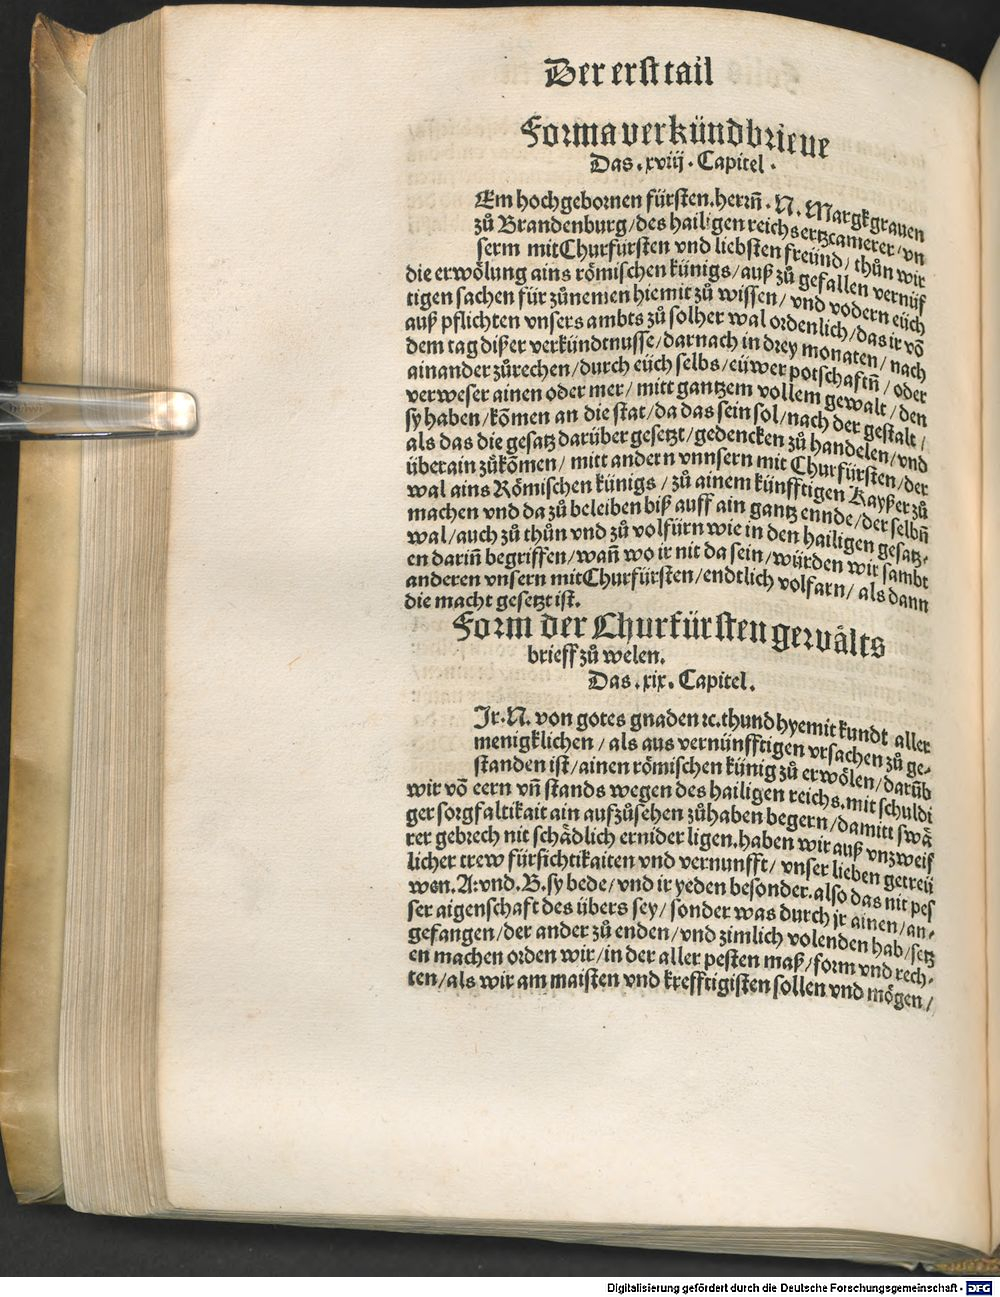 Der erst tail
Forma verkündbrieue
Das . xviij . Capitel .
Em hochgebornen fürsten. herrñ . N. Margkgrauen
zů Brandenburg / des hailigen reichs ertzcamerer / vn
serm mit Churfürsten vnd liebsten freünd / thůn wir
die erwölung ains römischen künigs / auß zů gefallen vernüf
tigen sachen für zůnemen hiemit zů wissen / vnd vodern eüch
auß pflichten vnsers ambts zů solher wal ordenlich / das ir võ
dem tag dißer verkündtnusse / darnach in drey monaten / nach
ainander zůrechen / durch eüch selbs / eüwer potschafftñ / oder
verweser ainen oder mer / mitt gantzem vollem gewalt / den
sy haben / kõmen an die stat / da das sein sol / nach der gestalt /
als das die gesatz darüber gesetzt / gedencken zů handelen / vnd
überain zůkõmen / mitt andern vnnsern mit Churfürsten / der
wal ains Römischen künigs / zů ainem künfftigen Kayßer zů
machen vnd da zů beleiben biß auff ain gantz ennde / der selbñ
wal / auch zů thůn vnd zů volfürn wie in den hailigen gesatz-
en dariñ begriffen / wañ wo ir nit da sein / würden wir sambt
anderen vnsern mitChurfürsten / endtlich volfarn / als dann
die macht gesetzt ist.
Form der Churfürsten gewålts
brieff zů welen.
Das . xix . Capitel .
Jr. N. von gotes gnaden ꝛc. thund hyemit kundt aller
menigklichen / als aus vernünfftigen vrsachen zů ge-
standen ist / ainen römischen künig zů erwölen / darüb
wir võ eern vñ stands wegen des hailigen reichs. mit schuldi
ger sorgfaltikait ain aufzůsehen zůhaben begern / damitt swå
rer gebrech nit schådlich ernider ligen. haben wir auß vnzweif
licher trew fürsichtikaiten vnd vernunfft / vnser lieben getreü
wen. A: vnd. B. sy bede / vnd ir yeden besonder. also das nit pes
ser aigenschaft des übers sey / sonder was durch jr ainen / an-
gefangen / der ander zů enden / vnd zimlich volenden hab / setz
en machen orden wir / in der aller pesten maß / form vnd rech-
ten / als wir am maisten vnd krefftigisten sollen vnd mögen /
Digitalisierung gefördert durch die Deutsche Forschungsgemeinschaft - DFG